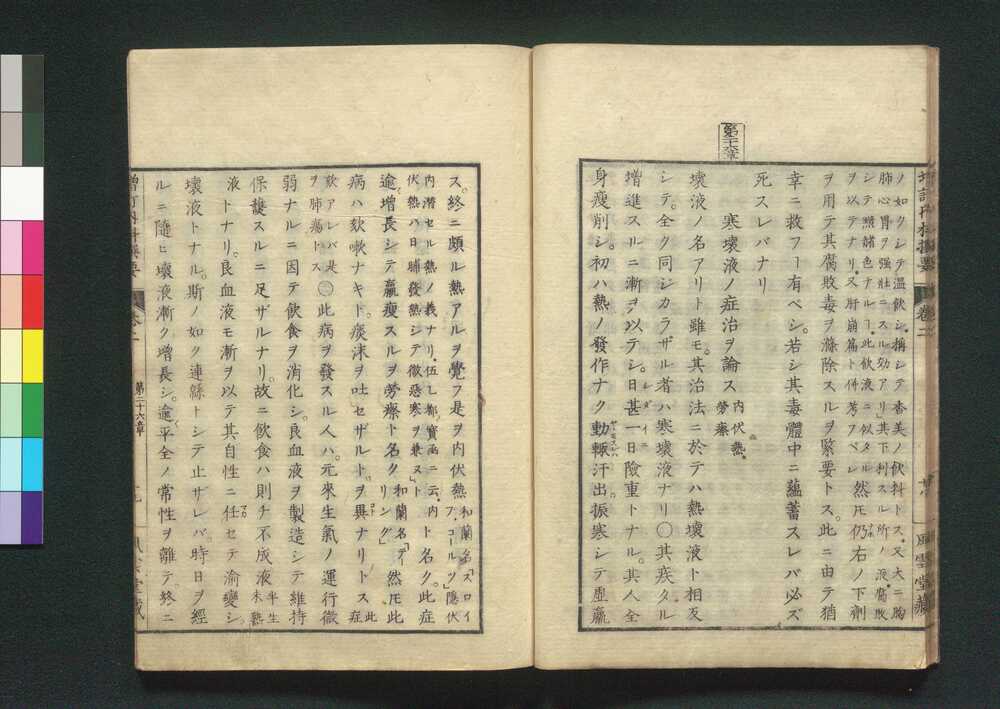 第三十六章
ノ如クシテ温飲シ稱シテ香美ノ飲料トス又大ニ胸
肺心胃ヲ強壯ニスル効アリ其下利スル所ノ液腐敗
シテ黯諸色ナルヿ此飲液ニ似タル
ヲ以テナリ又肝崩篇ト併考フベシ然𪜈仍右ノ下劑
ヲ用テ其腐敗毒ヲ滌除スルヲ緊要トス此ニ由テ猶
幸ニ救フヿ有ベシ若シ其毒體中ニ蘊蓄スレバ必ズ
死スレバナリ
寒壞液ノ症治ヲ論ス 内伏熱 勞瘵
壞液ノ名アリト雖モ其治法ニ於テハ熱壞液ト相反
シテ全ク同ジカラザル者ハ寒壞液ナリ〇其疾タル
増進スルニ漸ヲ以テシ日甚一日險重トナル其人全
身瘦削シ初ハ熱ノ發作ナク動輙汗出振寒シテ虚羸
ス終ニ頗ル熱アルヲ覺フ是ヲ内伏熱 和蘭名「スロイ
フコールツ」隱伏
内潛セル熱ノ義ナリ
伏熱ハ日晡發熱シテ微惡寒ヲ兼ヌト ト名ク此症
逾増長シテ羸瘦スルヲ勞瘵ト名ク 和蘭名「テイ
リング」 然𪜈此
病ハ欬嗽ナキト痰沫ヲ吐セザルトヲ異ナリトス 此症
欬アレバ是
ヲ肺癆トス 〇此病ヲ發スル人ハ元來生氣ノ運行微
弱ナルニ因テ飲食ヲ消化シ良血液ヲ製造シテ維持
保護スルニ足ザルナリ故ニ飲食ハ則チ不成液 半生
未熟
液トナリ良血液モ漸ヲ以テ其自性ニ任セテ渝變シ
壞液トナル斯ノ如ク連緜トシテ止ザレバ時日ヲ經
ルニ隨ヒ壞液漸ク増長シ逾平全ノ常性ヲ離テ終ニ
第三十六章